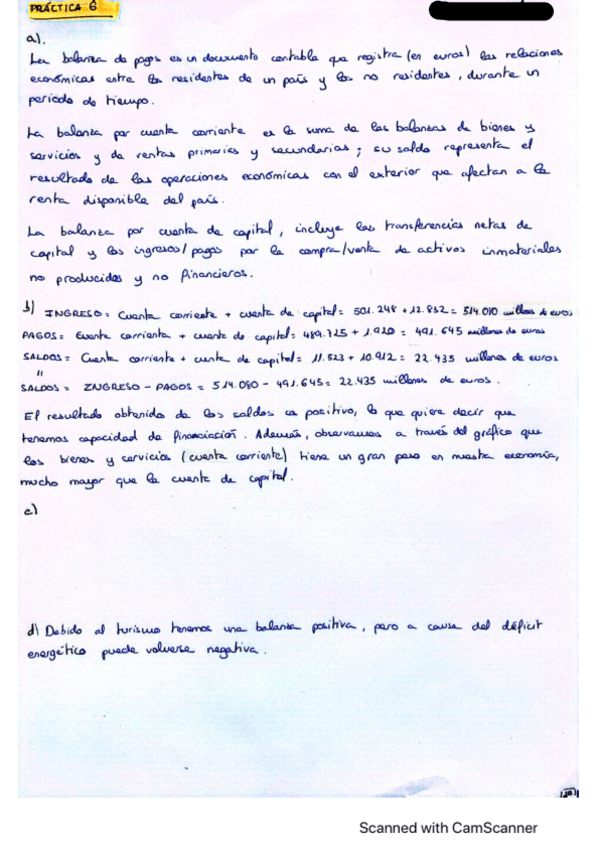 PRÁCTICA 6
a).
La balanza de pagos es un documento contable que registra (en euros) las relaciones
económicas entre los residentes de un país y los no residentes, durante un
periodo de tiempo.
La balanza por cuenta corriente es la suma de las balanzas de bienes y
servicios y de rentas primarias y secundarias; su saldo representa el
resultado de las operaciones económicas con el exterior que afectan a la
renta disponible del país.
La balanza por cuenta de capital, incluye las transferencias netas de
capital y los ingresos/pagos por la compra/venta de activos inmateriales
no producidos y no financieros.
b) INGRESO: Cuenta corriente + cuenta de capital = 501.248 + 12.832 = 514.080 millones de euros
PAGOS = Cuenta corriente + cuenta de capital = 489.725 + 1.920 = 491.645 millones de euros
SALDOS = Cuenta corriente + cuenta de capital = 11.523 + 10.912 = 22.435 millones de euros
"
SALDOS = INGRESO - PAGOS = 514.080 - 491.645 = 22.435 millones de euros.
El resultado obtenido de los saldos es positivo, lo que quiere decir que
tenemos capacidad de financiación. Además, observamos a través del gráfico que
los bienes y servicios (cuenta corriente) tiene un gran peso en nuestra economía,
mucho mayor que la cuenta de capital.
c)
d) Debido al turismo tenemos una balanza positiva, pero a causa del déficit
energético puede volverse negativa.
Scanned with CamScanner